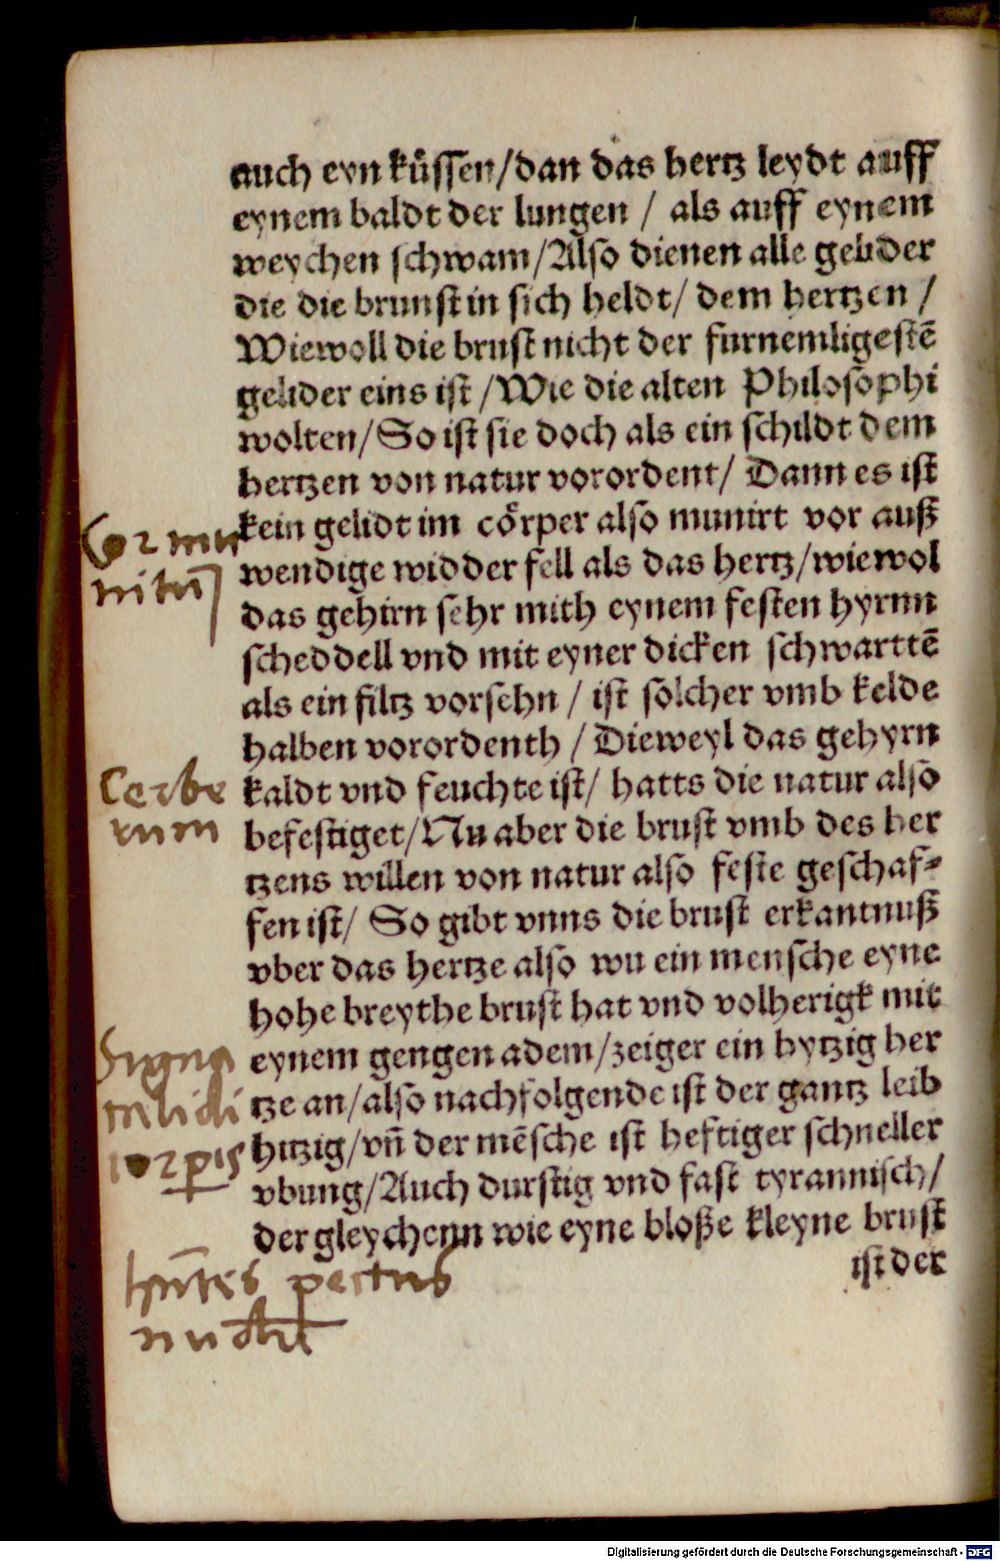 auch eyn küssen/dan das hertz leydt auff
eynem baldt der lungen / als auff eynem
weychen schwam/Also dienen alle gelider
die die brunst in sich heldt/ dem hertzen /
Wiewoll die brust nicht der furnemligestē
gelider eins ist /Wie die alten Philosophi
wolten/So ist sie doch als ein schildt dem
hertzen von natur vorordent/ Dann es ist
kein gelidt im cörper also munirt vor auß
wendige widder fell als das hertz/wiewol
das gehirn sehr mith eynem festen hyrnn
scheddell vnd mit eyner dicken schwarttē
als ein filtz vorsehn / ist solcher vmb kelde
halben vorordenth / Dieweyl das gehyrn
kaldt vnd feuchte ist/ hatts die natur also
befestiget/Nu aber die brust vmb des her
tzens willen von natur also feste geschaf-
fen ist/ So gibt vnns die brust erkantnuß
vber das hertze also wu ein mensche eyne
hohe breythe brust hat vnd volherigk mit
eynem gengen adem/zeiger ein hytzig her
tze an/also nachfolgende ist der gantz leib
hitzig/vñ der mēsche ist heftiger schneller
vbung/Auch durstig vnd fast tyrannisch/
der gleychenn wie eyne bloße kleyne brust
ist der
Cor mu
nitū
Cerbe
rum
Signa
calidi
corp̱is
pectus